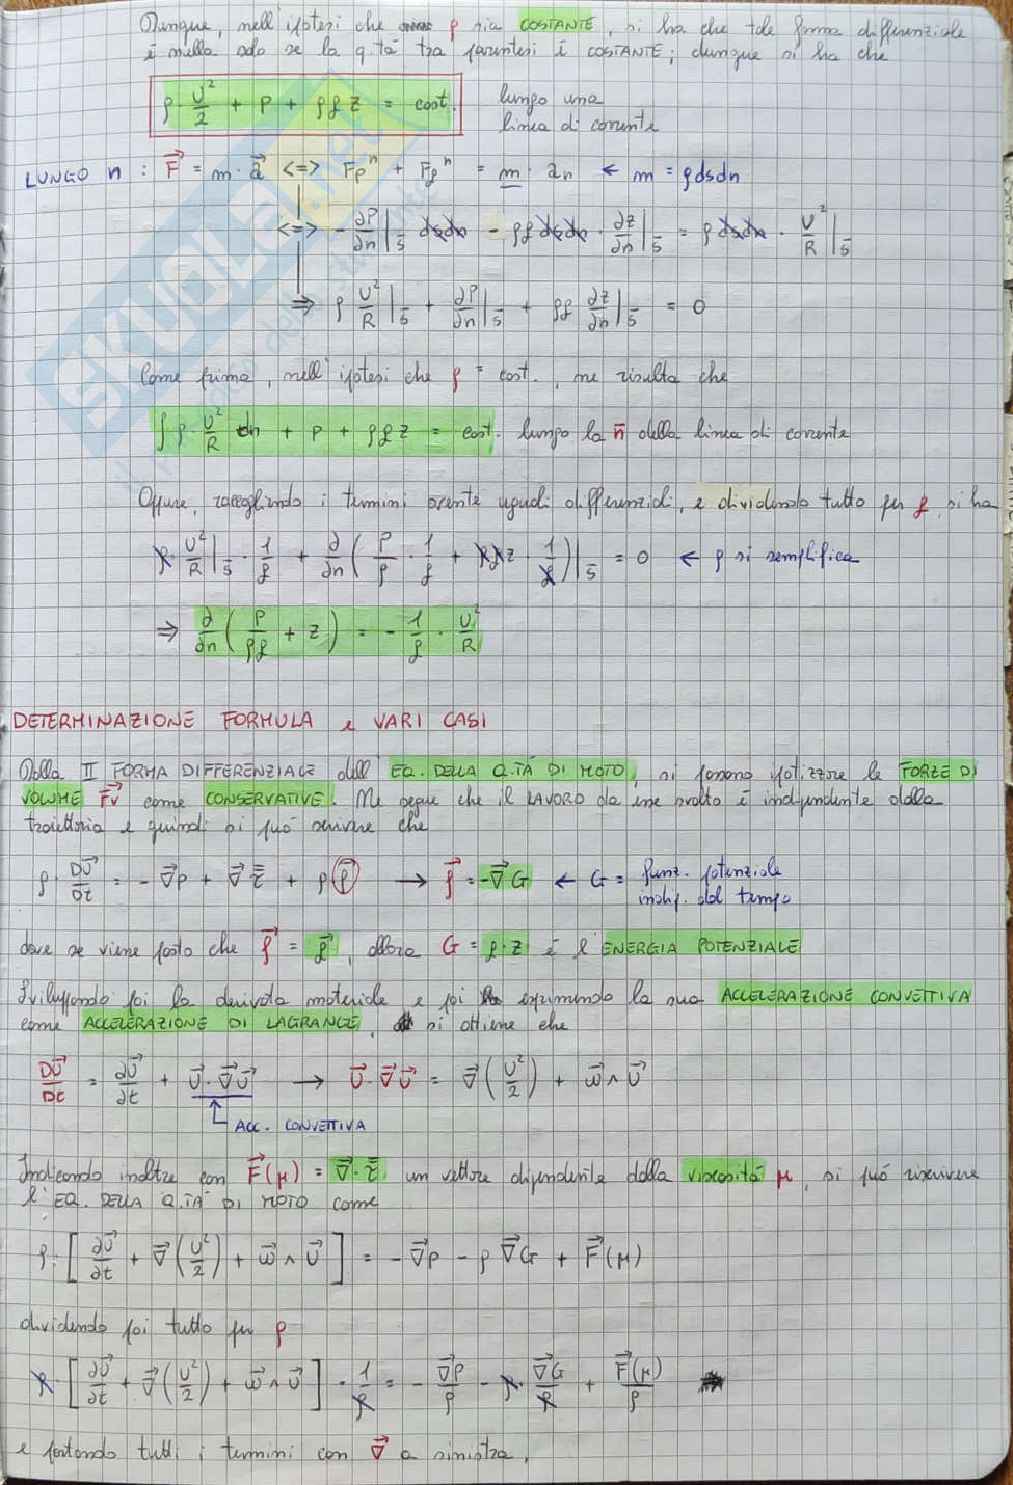 Dunque, nell'ipotesi che ρ sia COSTANTE, si ha che tale forma differenziale
è nulla solo se la q.tà tra parentesi è COSTANTE; dunque si ha che
ρ · U²/2 + p + ρgz = cost. lungo una
linea di corrente
LUNGO n : F⃗ = m · a⃗ <=> Fpⁿ + Fgⁿ = m · an ← m = ρdsdn
<=> - ∂P/∂n|s̄ dsdn - ρg dsdn · ∂z/∂n|s̄ = ρ dsdn · U²/R|s̄
=> ρ U²/R|s̄ + ∂P/∂n|s̄ + ρg ∂z/∂n|s̄ = 0
Come prima, nell'ipotesi che ρ = cost., ne risulta che
∫ ρ · U²/R dn + p + ρgz = cost. lungo la n̄ della linea di corrente
Oppure, raccogliendo i termini aventi uguali differenziali, e dividendo tutto per g, si ha
ρ · U²/R|s̄ · 1/g + ∂/∂n (P/ρ · 1/g + ρgz · 1/g)|s̄ = 0 ← ρ si semplifica
=> ∂/∂n (P/ρg + z) = - 1/g · U²/R
DETERMINAZIONE FORMULA e VARI CASI
Dalla II FORMA DIFFERENZIALE dell'EQ. DELLA Q.TÀ DI MOTO, si possono ipotizzare le FORZE DI
VOLUME F⃗v come CONSERVATIVE. Ne segue che il LAVORO da esse svolto è indipendente dalla
traiettoria e quindi si può scrivere che
ρ · DU⃗/Dt = - ∇⃗p + ∇⃗ τ̿ + ρ f⃗ → f⃗ = -∇⃗G ← G = funz. potenziale
indip. dal tempo
dove se viene posto che f⃗ = g⃗, allora G = g·z è l'ENERGIA POTENZIALE
Sviluppando poi la derivata materiale e poi esprimendo la sua ACCELERAZIONE CONVETTIVA
come ACCELERAZIONE DI LAGRANGE, si ottiene che
DU⃗/Dt = ∂U⃗/∂t + U⃗ · ∇⃗U⃗ → U⃗ · ∇⃗U⃗ = ∇⃗(U²/2) + ω⃗ ∧ U⃗
ACC. CONVETTIVA
Indicando inoltre con F⃗(μ) = ∇⃗ · τ̿ un vettore dipendente dalla viscosità μ, si può riscrivere
l'EQ. DELLA Q.TÀ DI MOTO come
ρ · [∂U⃗/∂t + ∇⃗(U²/2) + ω⃗ ∧ U⃗] = - ∇⃗p - ρ ∇⃗G + F⃗(μ)
dividendo poi tutto per ρ
ρ · [∂U⃗/∂t + ∇⃗(U²/2) + ω⃗ ∧ U⃗] · 1/ρ = - ∇⃗P/ρ - ρ · ∇⃗G/ρ + F⃗(μ)/ρ
e portando tutti i termini con ∇⃗ a sinistra,